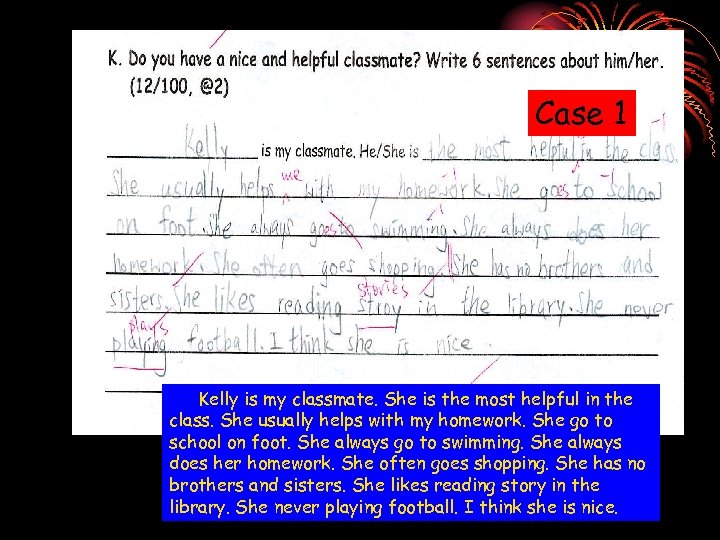 K. Do you have a nice and helpful classmate? Write 6 sentences about him/her.
(12/100, @2)
Case 1
-1
Kelly is my classmate. He/She is the most helpful in the class.
me -1 -1
She usually helps with my homework. She goes to school
-1
on foot. She always goes to swimming. She always does her
homework. She often goes shopping. She has no brothers and
stories
sisters. She likes reading stroy in the library. She never
plays
playing football. I think she is nice.
Kelly is my classmate. She is the most helpful in the
class. She usually helps with my homework. She go to
school on foot. She always go to swimming. She always
does her homework. She often goes shopping. She has no
brothers and sisters. She likes reading story in the
library. She never playing football. I think she is nice.